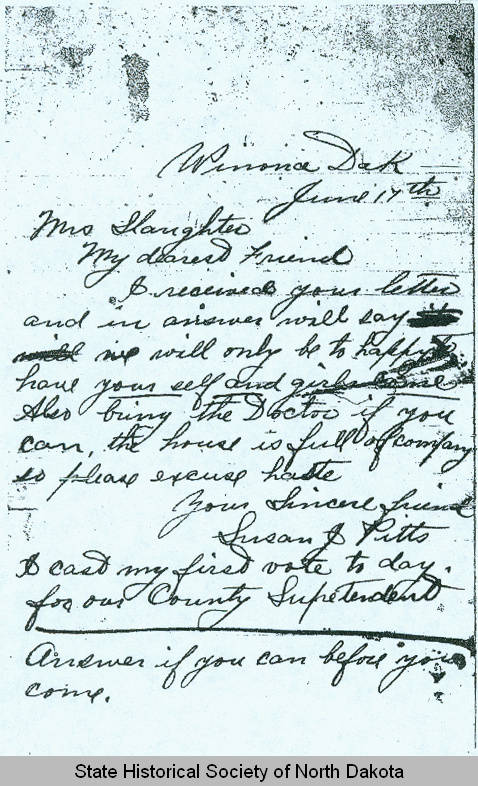 Winona Dak
June 17th
Mrs Slaughter
My dearest Friend
I received your letter
and in answer will say
we will only be to happy to
have your self and girls come
Also bring the Doctor if you
can, the house is full of company
so please excuse haste
Your Sincere friend
Susan J Pitts
I cast my first vote to day.
for our County Supretendent
Answer if you can before you
come.
State Historical Society of North Dakota